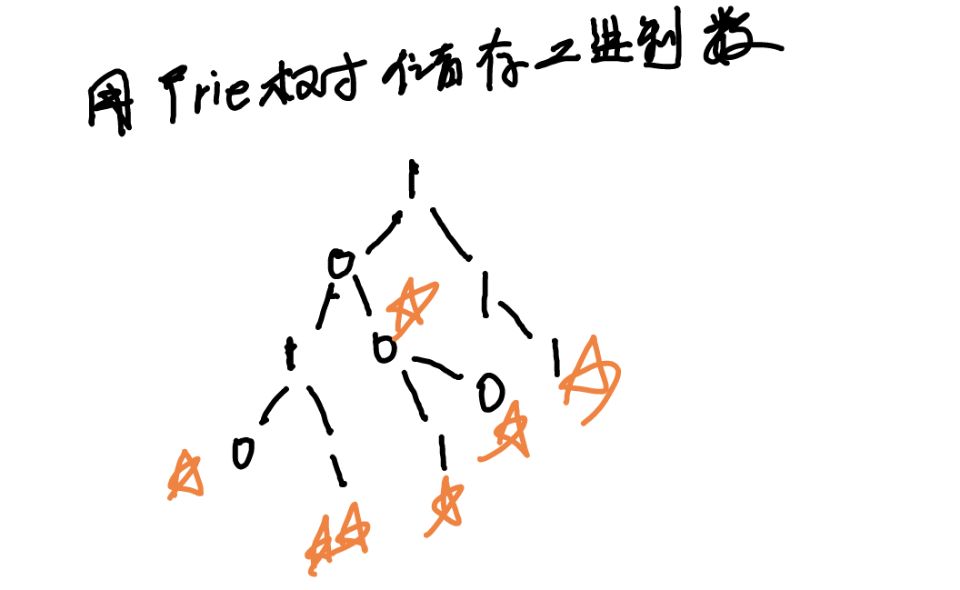 用Trie树储存二进制数
1
0
1
1
0
1
0
0
1
1